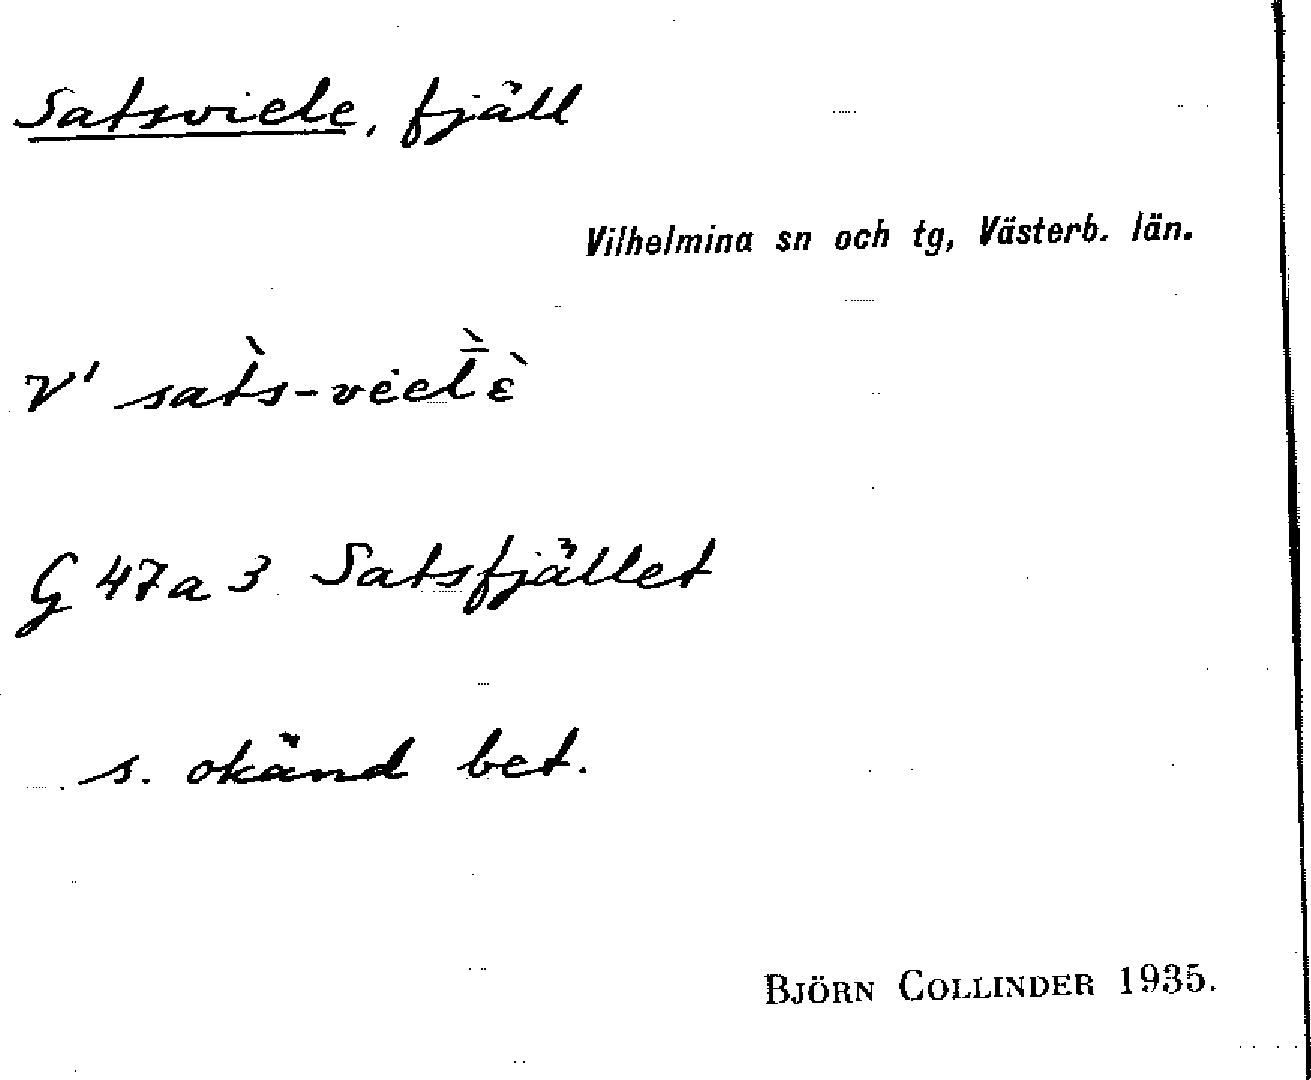 Satsviele, fjäll
Vilhelmina sn och tg, Västerb. län.
V'
G 47a3 Satsfjället
s. okänd bet.
BJÖRN COLLINDER 1935.